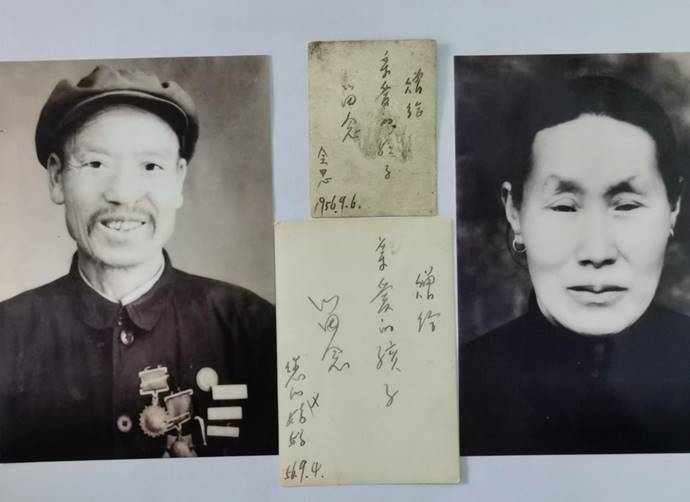 赠给
亲爱的孩子
留念
1956.9.6.
赠给
亲爱的孩子
留念
您的妈妈
56.9.4.